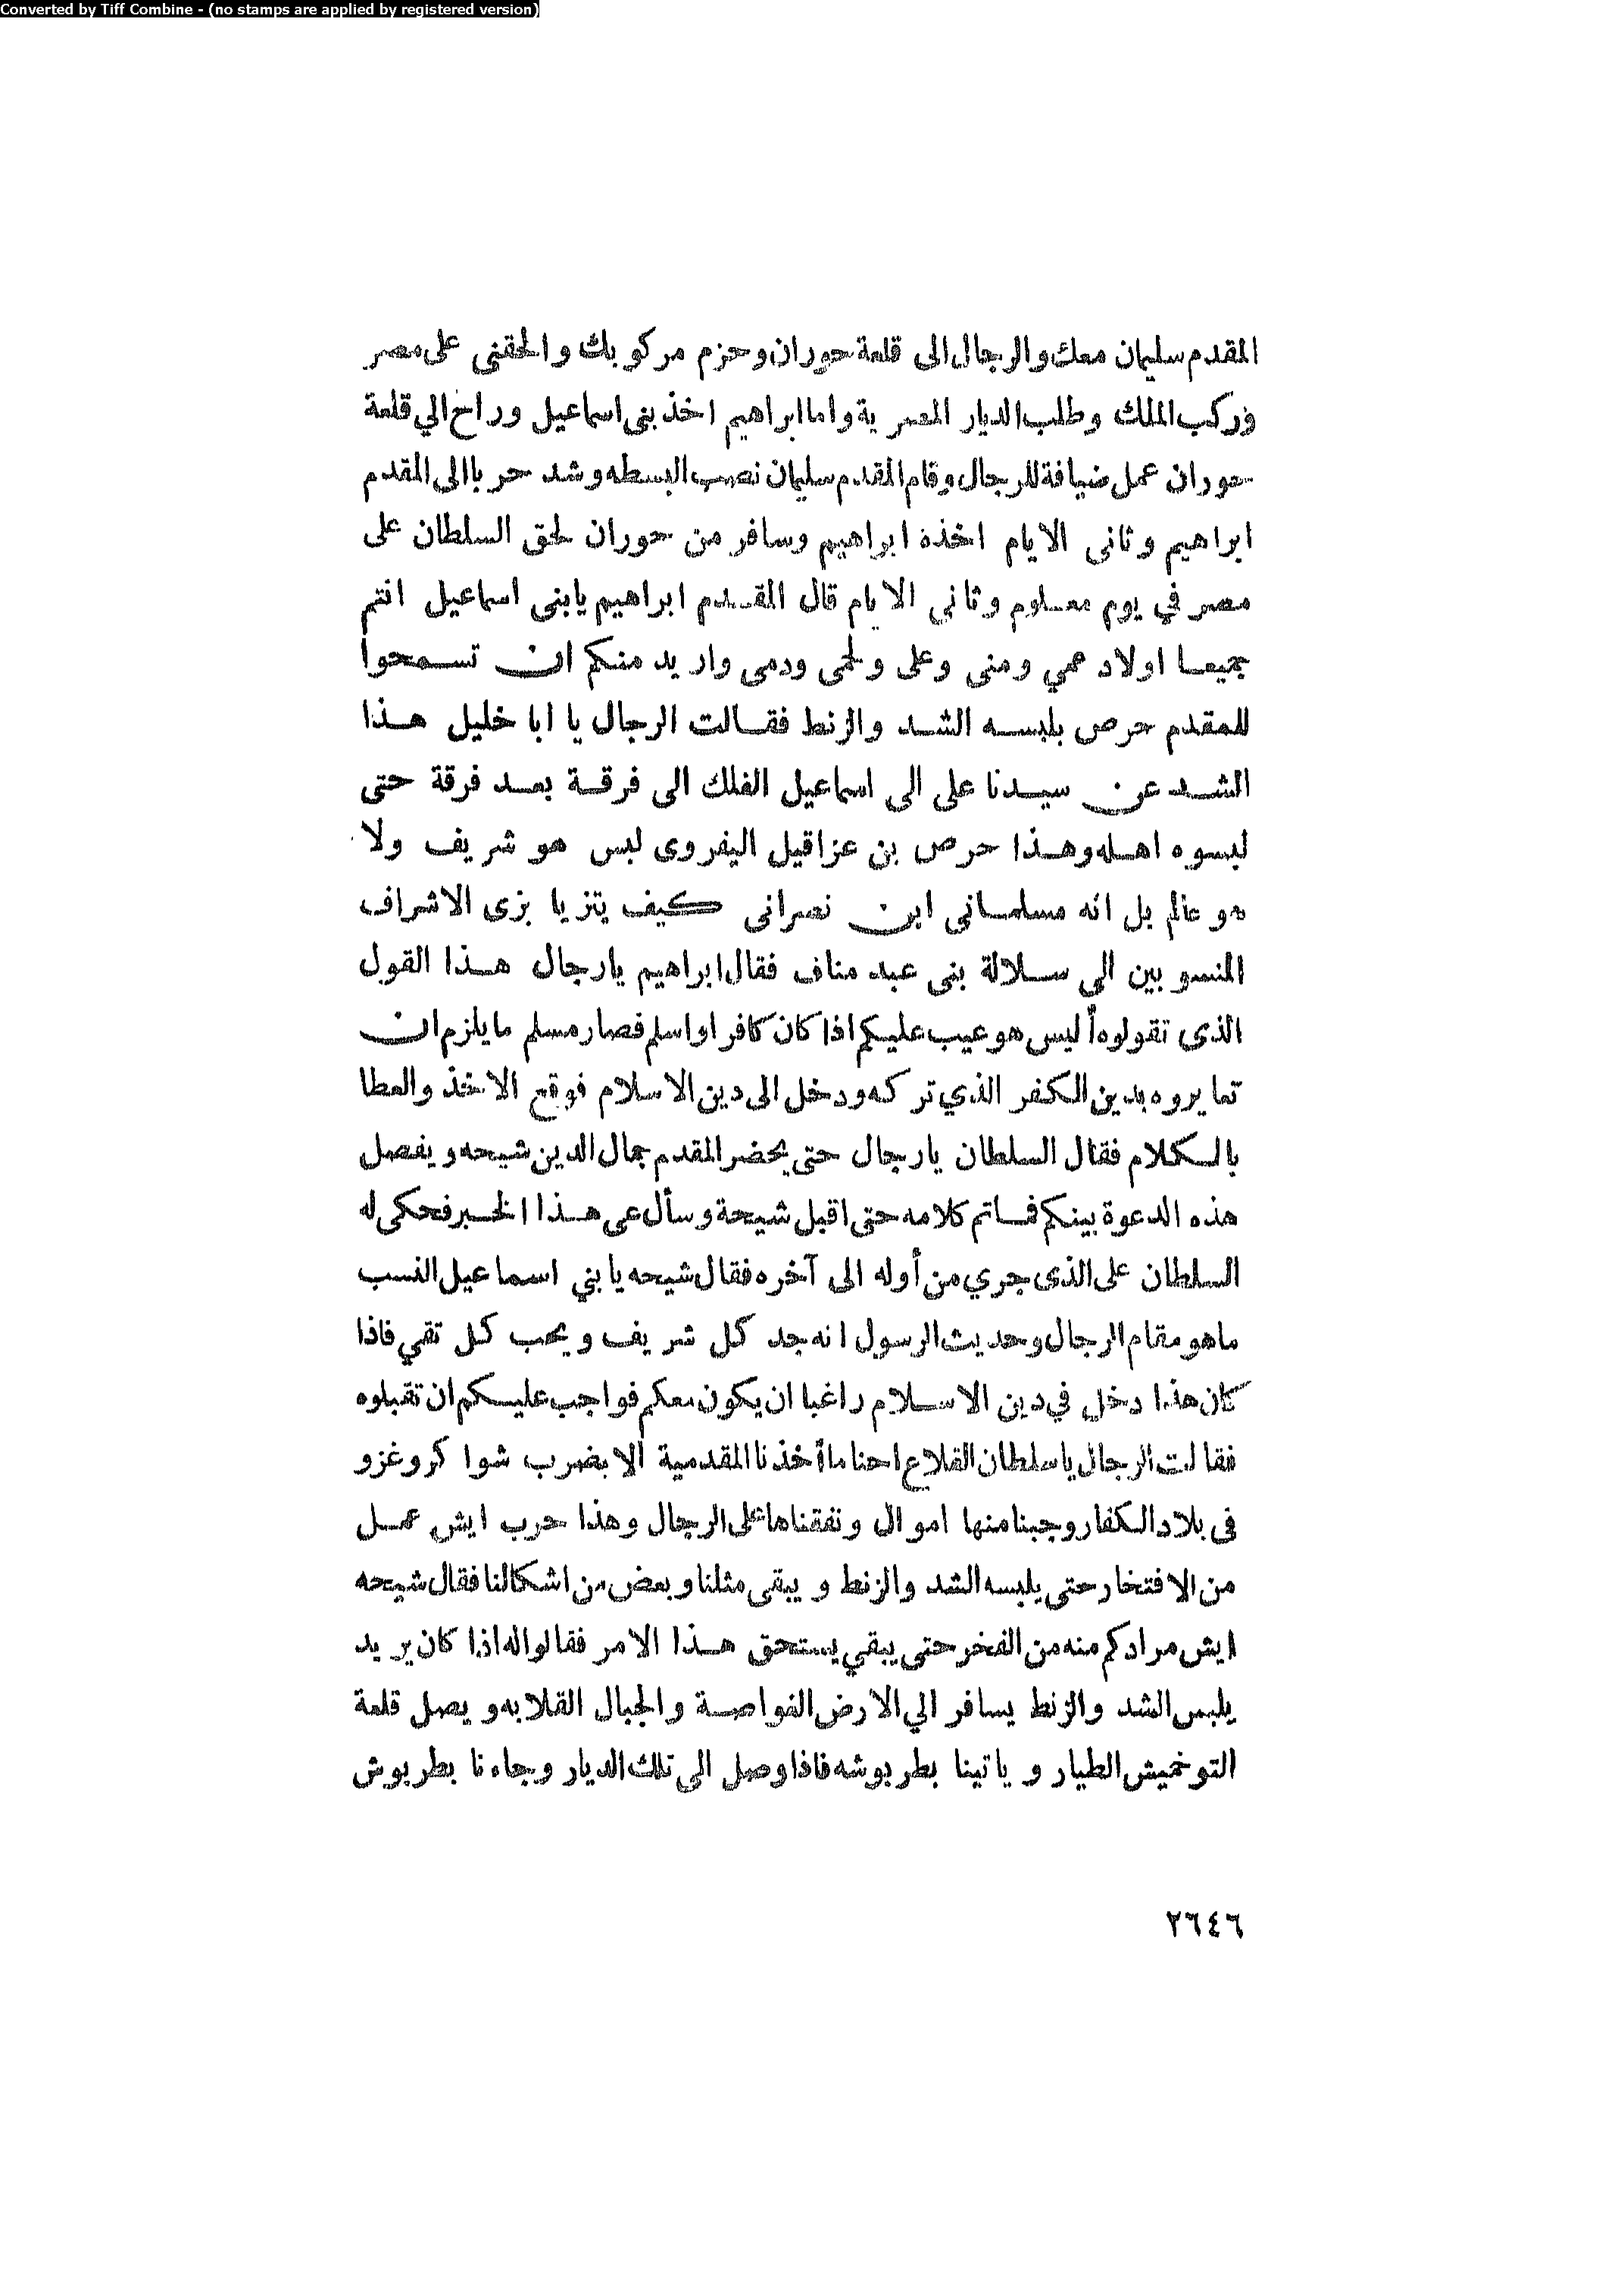 Converted by Tiff Combine - (no stamps are applied by registered version)
المقدم سليمان معك والرجال الى قلعة حوران وحزم مركوبك والحقنى على مصر
وركب الملك وطلب الديار المصرية واما ابراهيم اخذ بنى اسماعيل وراح الي قلعة
حوران عمل ضيافة للرجال وقام المقدم سليمان نصب البسطه وشد حربا الى المقدم
ابراهيم وثانى الايام اخذه ابراهيم وسافر من حوران لحق السلطان على
مصر في يوم معلوم وثانى الايام قال المقدم ابراهيم يابنى اسماعيل انتم
جميعا اولاد عمي ومنى وعلى ولحمى ودمى واريد منكم ان تسمحوا
للمقدم حرص بلبسه الشد والزنط فقالت الرجال يا ابا خليل هذا
الشد عن سيدنا على الى اسماعيل الفلك الى فرقة بعد فرقة حتى
لبسوه اهله وهذا حرص بن عزاقيل اليفروى لبس هو شريف ولا
هو عالم بل انه مسلمانى ابن نصرانى كيف يتزيا بزى الاشراف
المنسوبين الي سلالة بنى عبد مناف فقال ابراهيم يارجال هذا القول
الذى تقولوه أليس هو عيب عليكم اذا كان كافر اواسلم فصار مسلم ما يلزم ان
تمايروه بدين الكفر الذي تركه ودخل الى دين الاسلام فوقع الاخذ والعطا
بالكلام فقال السلطان يارجال حتى يحضر المقدم جمال الدين شيحه ويفصل
هذه الدعوة بينكم فماتم كلامه حتى اقبل شيحة وسأل عى هذا الخبر فحكى له
السلطان على الذى جري من أوله الى آخره فقال شيحه يا بني اسماعيل النسب
ماهو مقام الرجال وحديث الرسول انه جد كل شريف ويحب كل تقي فاذا
كان هذا دخل في دين الاسلام راغبا ان يكون معكم فواجب عليكم ان تقبلوه
فقالت الرجال ياسلطان القلاع احنا ماأخذنا المقدمية الا بضرب شواكر وغزو
فى بلاد الكفار وجبنا منها اموال ونفقناها على الرجال وهذا حرب ايش عمل
من الافتخار حتى يلبسه الشد والزنط ويبقى مثلنا وبعض من اشكالنا فقال شيحه
ايش مرادكم منه من الفخر حتى يبقي يستحق هذا الامر فقالوا له اذا كان يريد
يلبس الشد والزنط يسافر الي الارض الغواصة والجبال القلابه ويصل قلعة
التوخميش الطيار وياتينا بطربوشه فاذا وصل الى تلك الديار وجاءنا بطربوش
٢٦٤٦